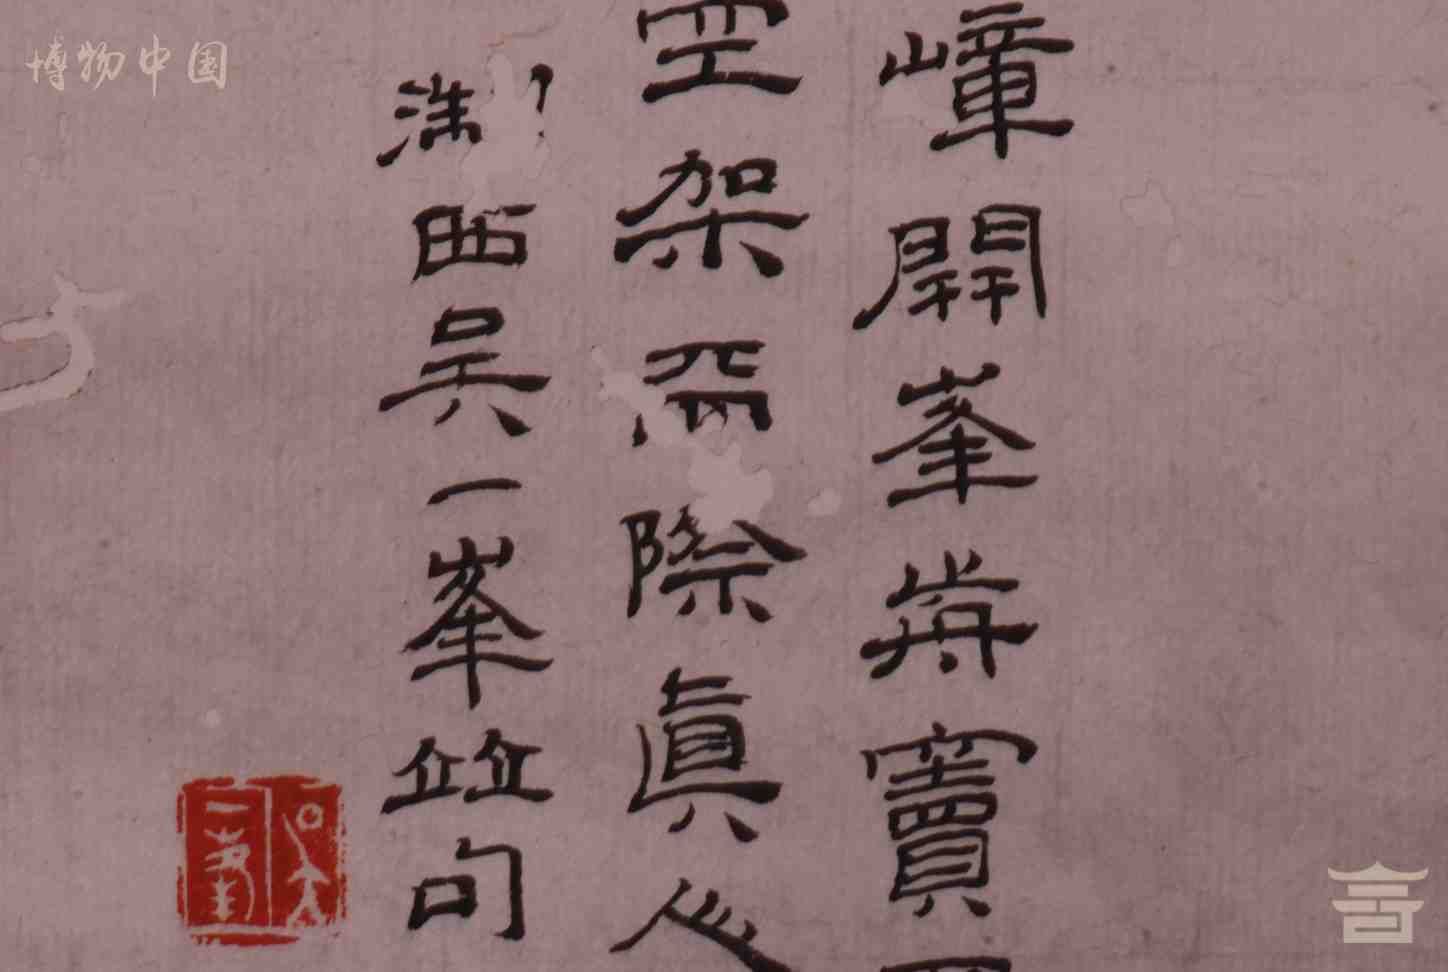 博物中国
嶂開峯竇
空架際眞
西吳一峯竝句
吳一峯